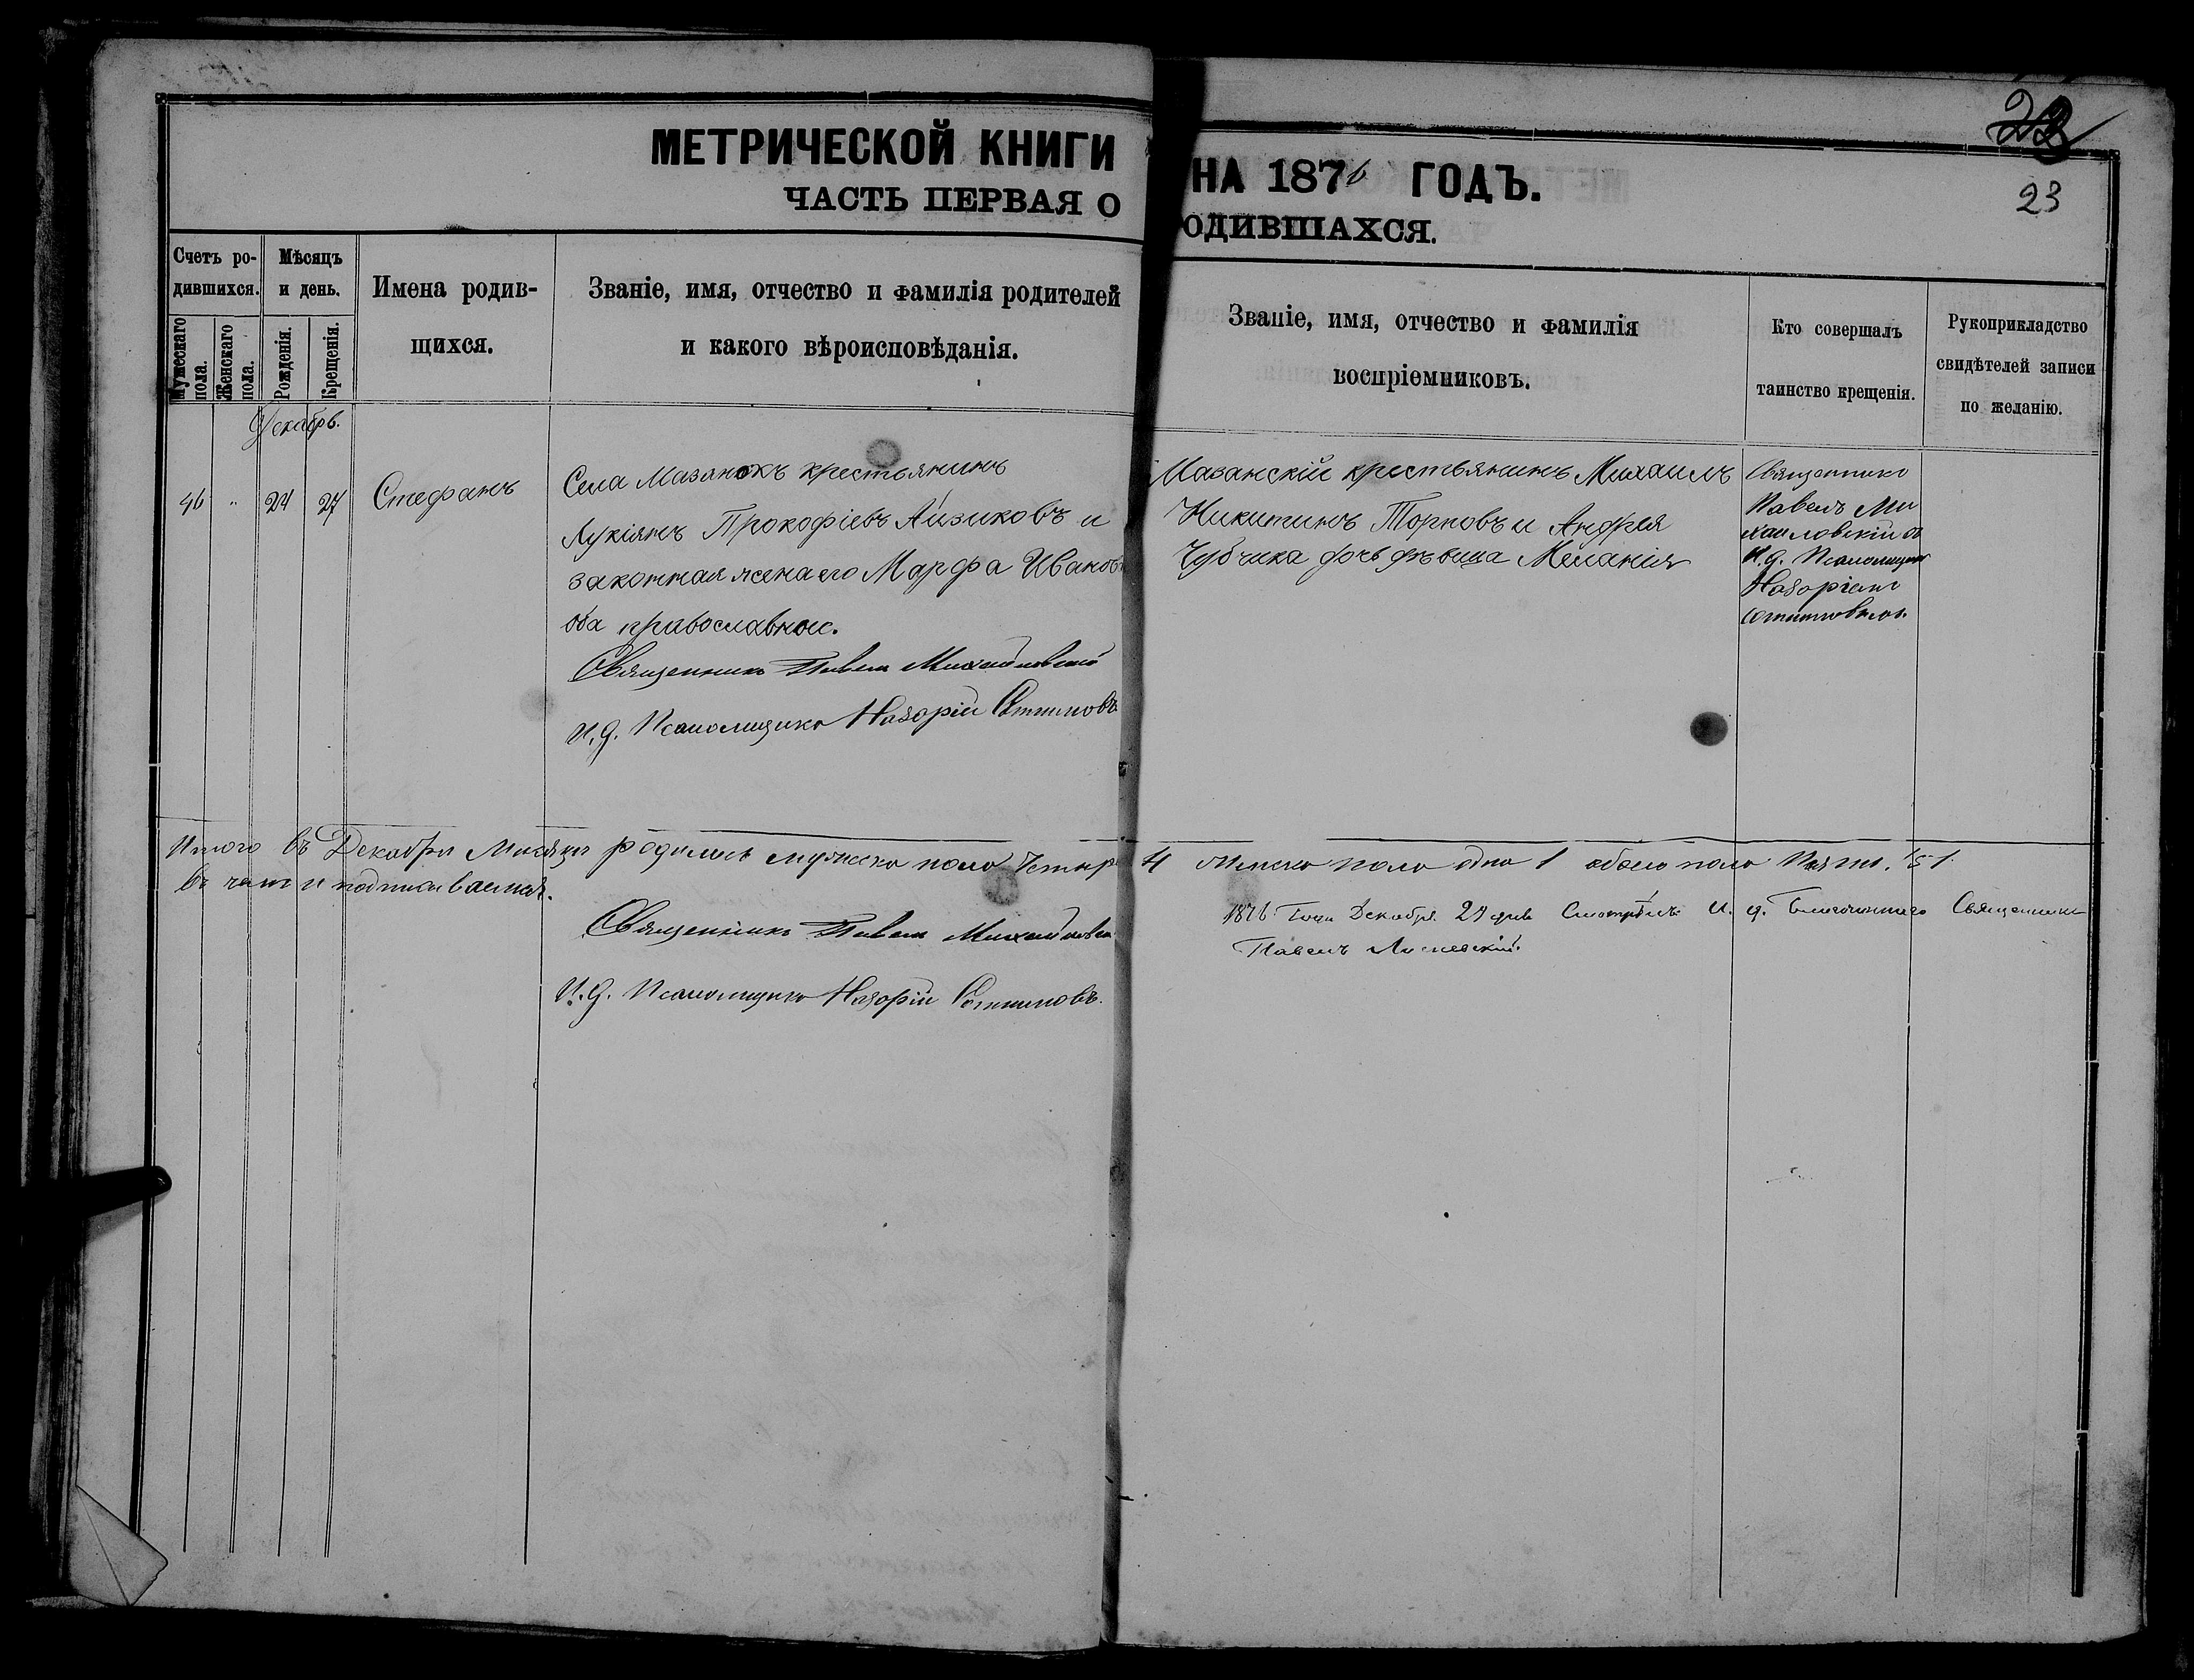 МЕТРИЧЕСКОЙ КНИГИ НА 1876 ГОДЪ.
ЧАСТЬ ПЕРВАЯ О РОДИВШАХСЯ.
23
Счетъ родившихся.
Мужескаго пола.
Женскаго пола.
Мѣсяцъ и день.
Рожденія.
Крещенія.
Имена родив-
щихся.
Званіе, имя, отчество и фамилія родителей
и какого вѣроисповѣданія.
Званіе, имя, отчество и фамилія
воспріемниковъ.
Кто совершалъ
таинство крещенія.
Рукоприкладство
свидѣтелей записи
по желанію.
Декабрь.
46 " 24 27 Стефанъ
Села Мазанокъ крестьянинъ
Лукіянъ Прокофіевъ Айзиковъ и
законная жена его Марфа Иванов
оба православные.
Священникъ Павелъ Михайловскій
И.д. Псаломщика Назарій
Мазанскій крестьянинъ Михаилъ
Никитинъ Торповъ и Андрея
Чубчика дочь дѣвица Меланія
Священникъ
Павелъ Ми
хайловскій съ
И.д. Псаломщика
Назаріемъ
Итого въ Декабрѣ Мѣсяцѣ родилось мужеска пола Четыр 4 женска пола одна 1 обоего пола Пять. 5
въ чемъ и подписываемся.
Священникъ Павелъ Михайловскій
И.д. Псаломщика Назарій
1876 Года Декабря 29 дня Смотрѣлъ И. д. Благочиннаго Священникъ
Павелъ